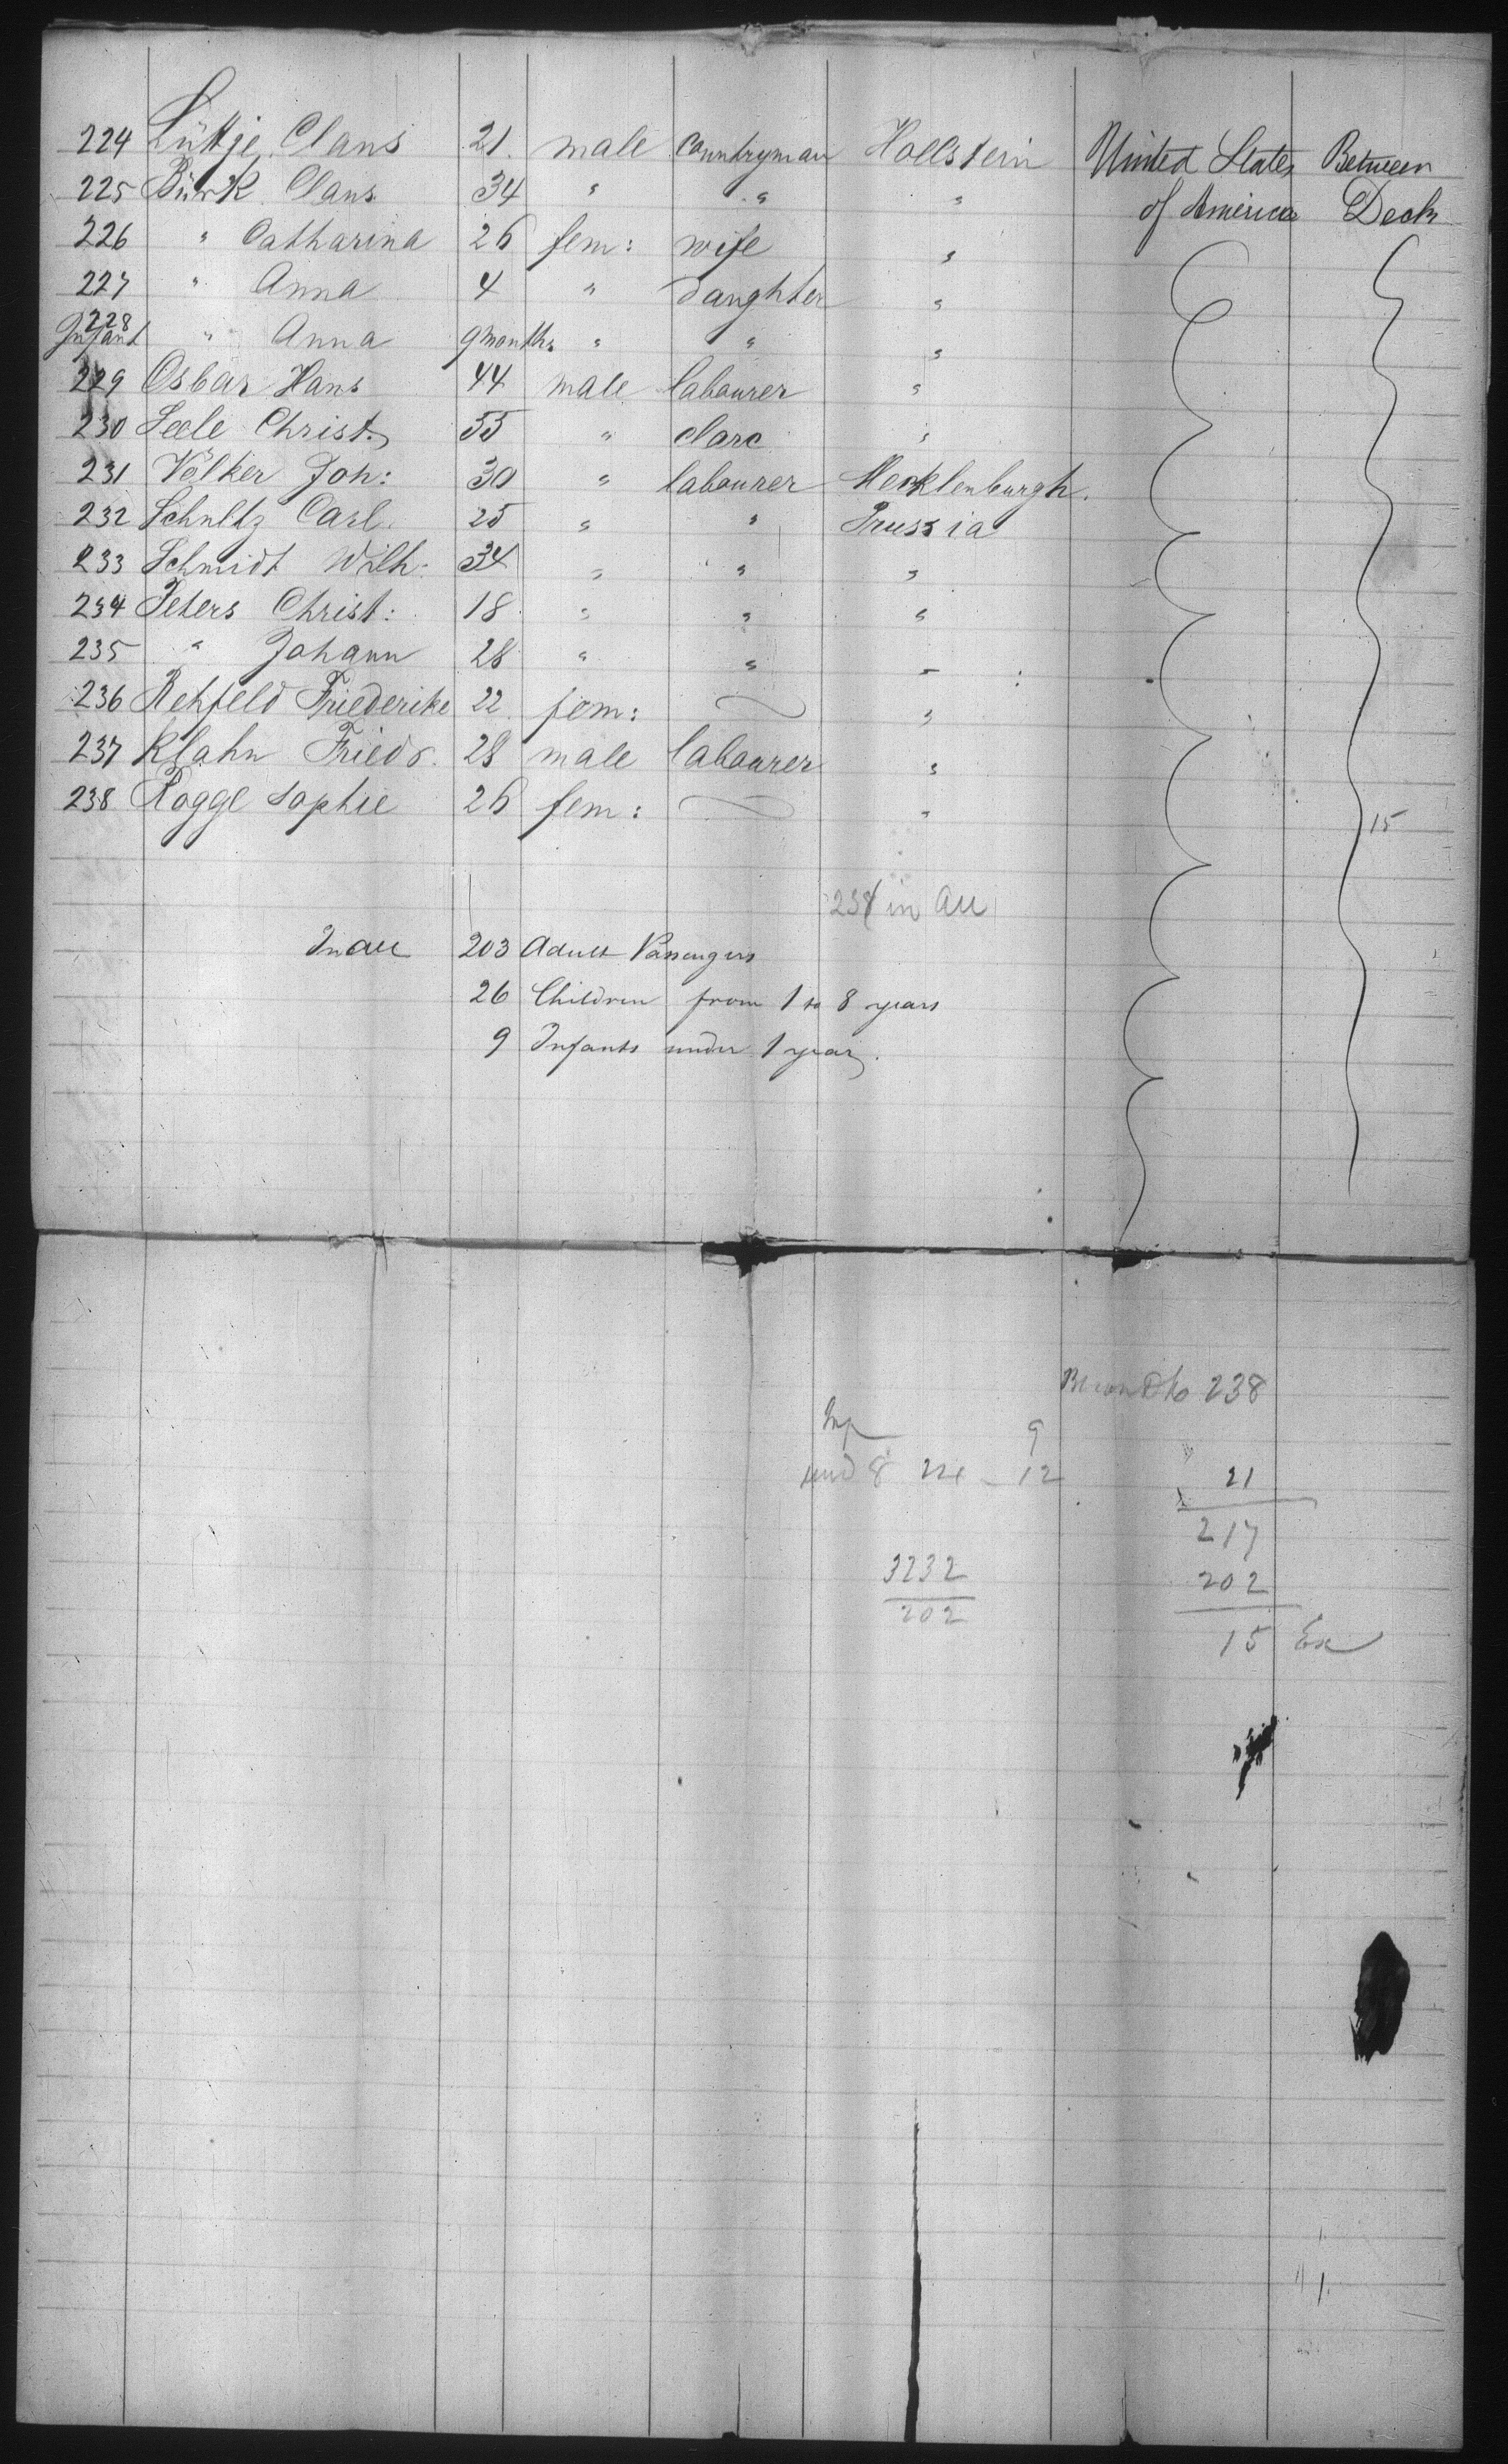 224 Lüttje Claus 21. male Countryman Hollstein United States Between
225 Bürk Claus 34 " " " of America Deck
226 " Catharina 26 fem: wife "
227 " Anna 4 " daughter "
228
Infant " Anna 9 months " " "
229 Osbär Hans 44 male labourer "
230 Seele Christ. 55 " clarc "
231 Völker Joh: 30 " labourer Mecklenburgh.
232 Schultz Carl. 25 " " Prussia
233 Schmidt Wilh: 34 " " "
234 Peters Christ: 18 " " "
235 " Johann 28 " " "
236 Rehfeld Friederike 22. fem: — "
237 Klahn Friedr. 28 male labourer "
238 Rogge Sophie 26 fem: — " 15
238 in All
In all 203 Adult Passengers
26 Children from 1 to 8 years
9 Infants under 1 year.
238
Inf 9
und 8 24 - 12 21
217
3232 202
202
15 Ex